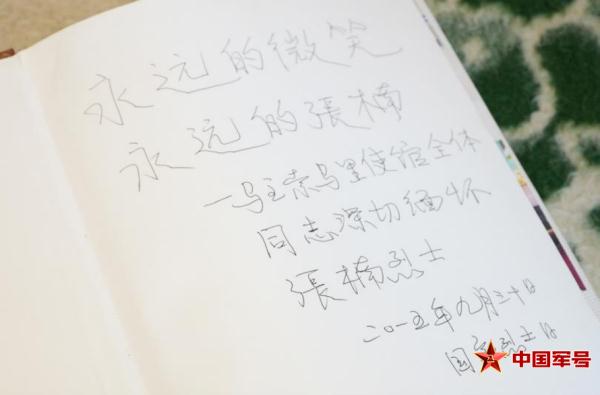 永远的微笑
永远的張楠
—驻索马里使馆全体
同志深切缅怀
張楠烈士
二〇一五年九月三十日
国家烈士日
中国军号